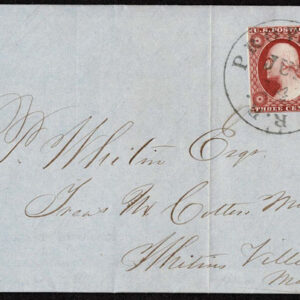 U.S. POSTAG
THREE CENTS
R.I.
P. Whitin Esqr.
Treas Mr Cotton M
Whitins Ville